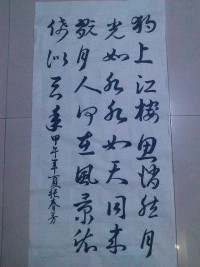 独上江楼思悄然月
光如水水如天同来
翫月人何在風景依
俙似去年甲午年夏张春芳